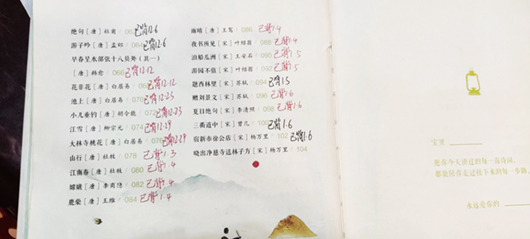 绝句[唐]杜甫 062 已背12.6
游子吟[唐]孟郊 064 已背12.6
早春呈水部张十八员外(其一)
[唐]韩愈 066 已背12-12
花非花[唐]白居易 068 已背12-12
池上[唐]白居易 070 已背12-23
小儿垂钓[唐]胡令能 072 已背12-23
江雪[唐]柳宗元 074 已背12-29
大林寺桃花[唐]白居易 076 已背12-29
山行[唐]杜牧 078 已背1.3
江南春[唐]杜牧 080 已背1.4
嫦娥[唐]李商隐 082 已背1.4
鹿柴[唐]王维 084 已背1.4
雨晴[唐]王驾 086 已背1.4
夜书所见[宋]叶绍翁 088 已背1.4
泊船瓜洲[宋]王安石 090 已背1.5
游园不值[宋]叶绍翁 092 已背1.5
题西林壁[宋]苏轼 094 已背1.5
赠刘景文[宋]苏轼 096 已背1.6
夏日绝句[宋]李清照 098 已背1.6
三衢道中[宋]曾几 100 已背1.6
宿新市徐公店[宋]杨万里 102 已背1.6
晓出净慈寺送林子方[宋]杨万里 104
宝贝
愿你今天读过的每一首诗词,
都能陪你走过接下来的每一步路。
永远爱你的